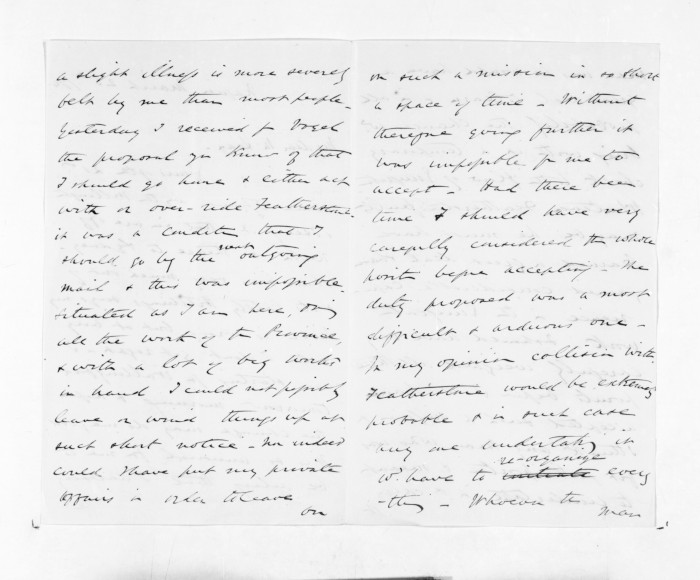 a slight illness is more severely
felt by me than most people.
Yesterday I received fr Vogel
the proposal you know of that
I should go home & either act
with or over-ride Featherstone.
it was a condition that I
should go by the next outgoing
mail & this was impossible.
Situated as I am here, doing
all the work of the Province,
& with a lot of big works
in hand I could not possibly
leave or wind things up at
such short notice - Nor indeed
could I have put my private
affairs in order to leave
on
on such a mission in so short
a space of time - Without
therefore going further it
was impossible for me to
accept - Had there been
time I should have very
carefully considered the whole
point before accepting - The
duty proposed was a most
difficult & arduous one -
In my opinion collision with
Featherstone would be extremely
probable & in such case
any one undertaking it
wd. have to initiate re-organize every
-thing - Whoever the
man